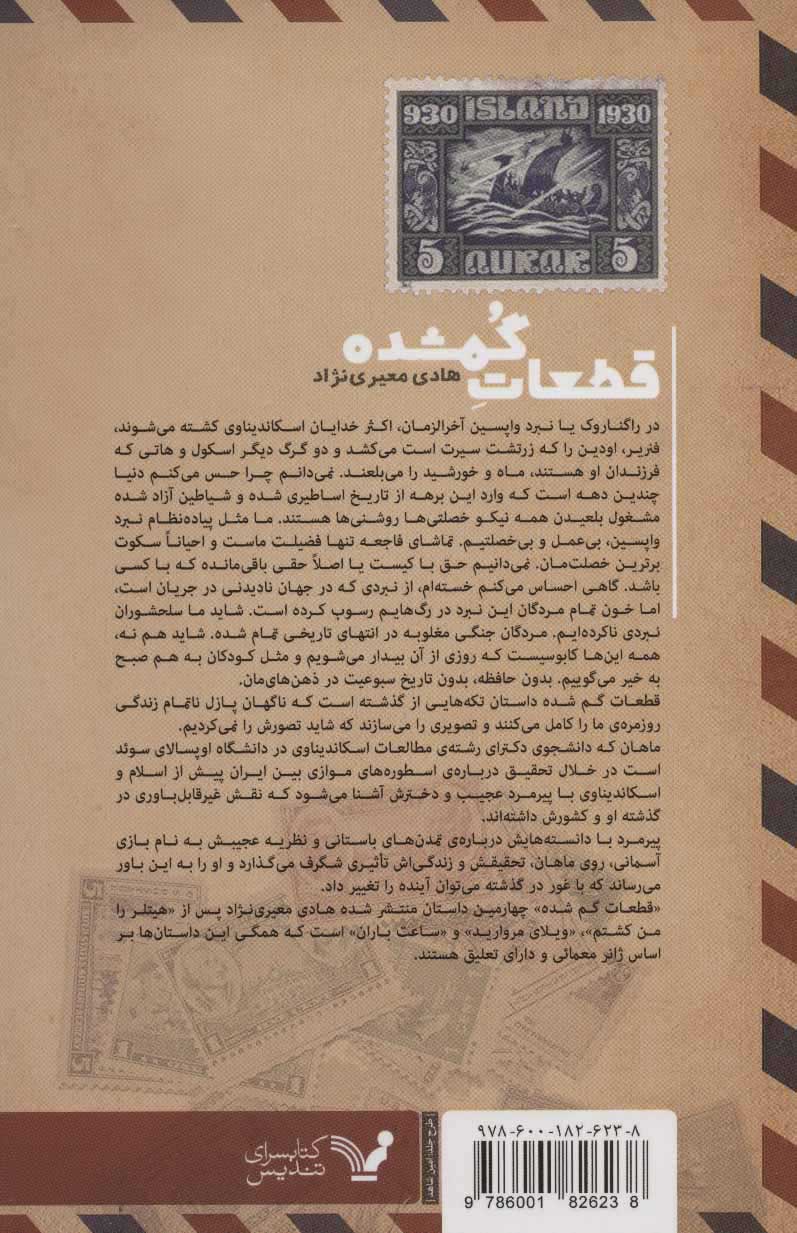 930 ISLAND 1930
5 AURAR 5
قطعاتِ گُمشده
هادی معیری‌نژاد
در راگناروک یا نبرد واپسین آخرالزمان، اکثر خدایان اسکاندیناوی کشته می‌شوند،
فنریر، اودین را که زرتشت سیرت است می‌کشد و دو گرگ دیگر اسکول و هاتی که
فرزندان او هستند، ماه و خورشید را می‌بلعند. نمی‌دانم چرا حس می‌کنم دنیا
چندین دهه است که وارد این برهه از تاریخ اساطیری شده و شیاطین آزاد شده
مشغول بلعیدن همه نیکو خصلتی‌ها روشنی‌ها هستند. ما مثل پیاده‌نظام نبرد
واپسین، بی‌عمل و بی‌خصلتیم. تماشای فاجعه تنها فضیلت ماست و احیاناً سکوت
برترین خصلت‌مان. نمی‌دانیم حق با کیست یا اصلاً حقی باقی‌مانده که با کسی
باشد. گاهی احساس می‌کنم خسته‌ام، از نبردی که در جهان نادیدنی در جریان است،
اما خون تمام مردگان این نبرد در رگ‌هایم رسوب کرده است. شاید ما سلحشوران
نبردی ناکرده‌ایم. مردگان جنگی مغلوبه در انتهای تاریخی تمام شده. شاید هم نه،
همه این‌ها کابوسیست که روزی از آن بیدار می‌شویم و مثل کودکان به هم صبح
به خیر می‌گوییم. بدون حافظه، بدون تاریخ سبوعیت در ذهن‌های‌مان.
قطعات گم شده داستان تکه‌هایی از گذشته است که ناگهان پازل ناتمام زندگی
روزمره‌ی ما را کامل می‌کنند و تصویری را می‌سازند که شاید تصورش را نمی‌کردیم.
ماهان که دانشجوی دکترای رشته‌ی مطالعات اسکاندیناوی در دانشگاه اوپسالای سوئد
است در خلال تحقیق درباره‌ی اسطوره‌های موازی بین ایران پیش از اسلام و
اسکاندیناوی با پیرمرد عجیب و دخترش آشنا می‌شود که نقش غیرقابل‌باوری در
گذشته او و کشورش داشته‌اند.
پیرمرد با دانسته‌هایش درباره‌ی تمدن‌های باستانی و نظریه عجیبش به نام بازی
آسمانی، روی ماهان، تحقیقش و زندگی‌اش تأثیری شگرف می‌گذارد و او را به این باور
می‌رساند که با غور در گذشته می‌توان آینده را تغییر داد.
«قطعات گم شده» چهارمین داستان منتشر شده هادی معیری‌نژاد پس از «هیتلر را
من کشتم»، «ویلای مروارید» و «ساعت باران» است که همگی این داستان‌ها بر
اساس ژانر معمائی و دارای تعلیق هستند.
کتابسرای
تندیس
طرح جلد: امین شاهد
۹۷۸-۶۰۰-۱۸۲-۶۲۳-۸
9 786001 826238